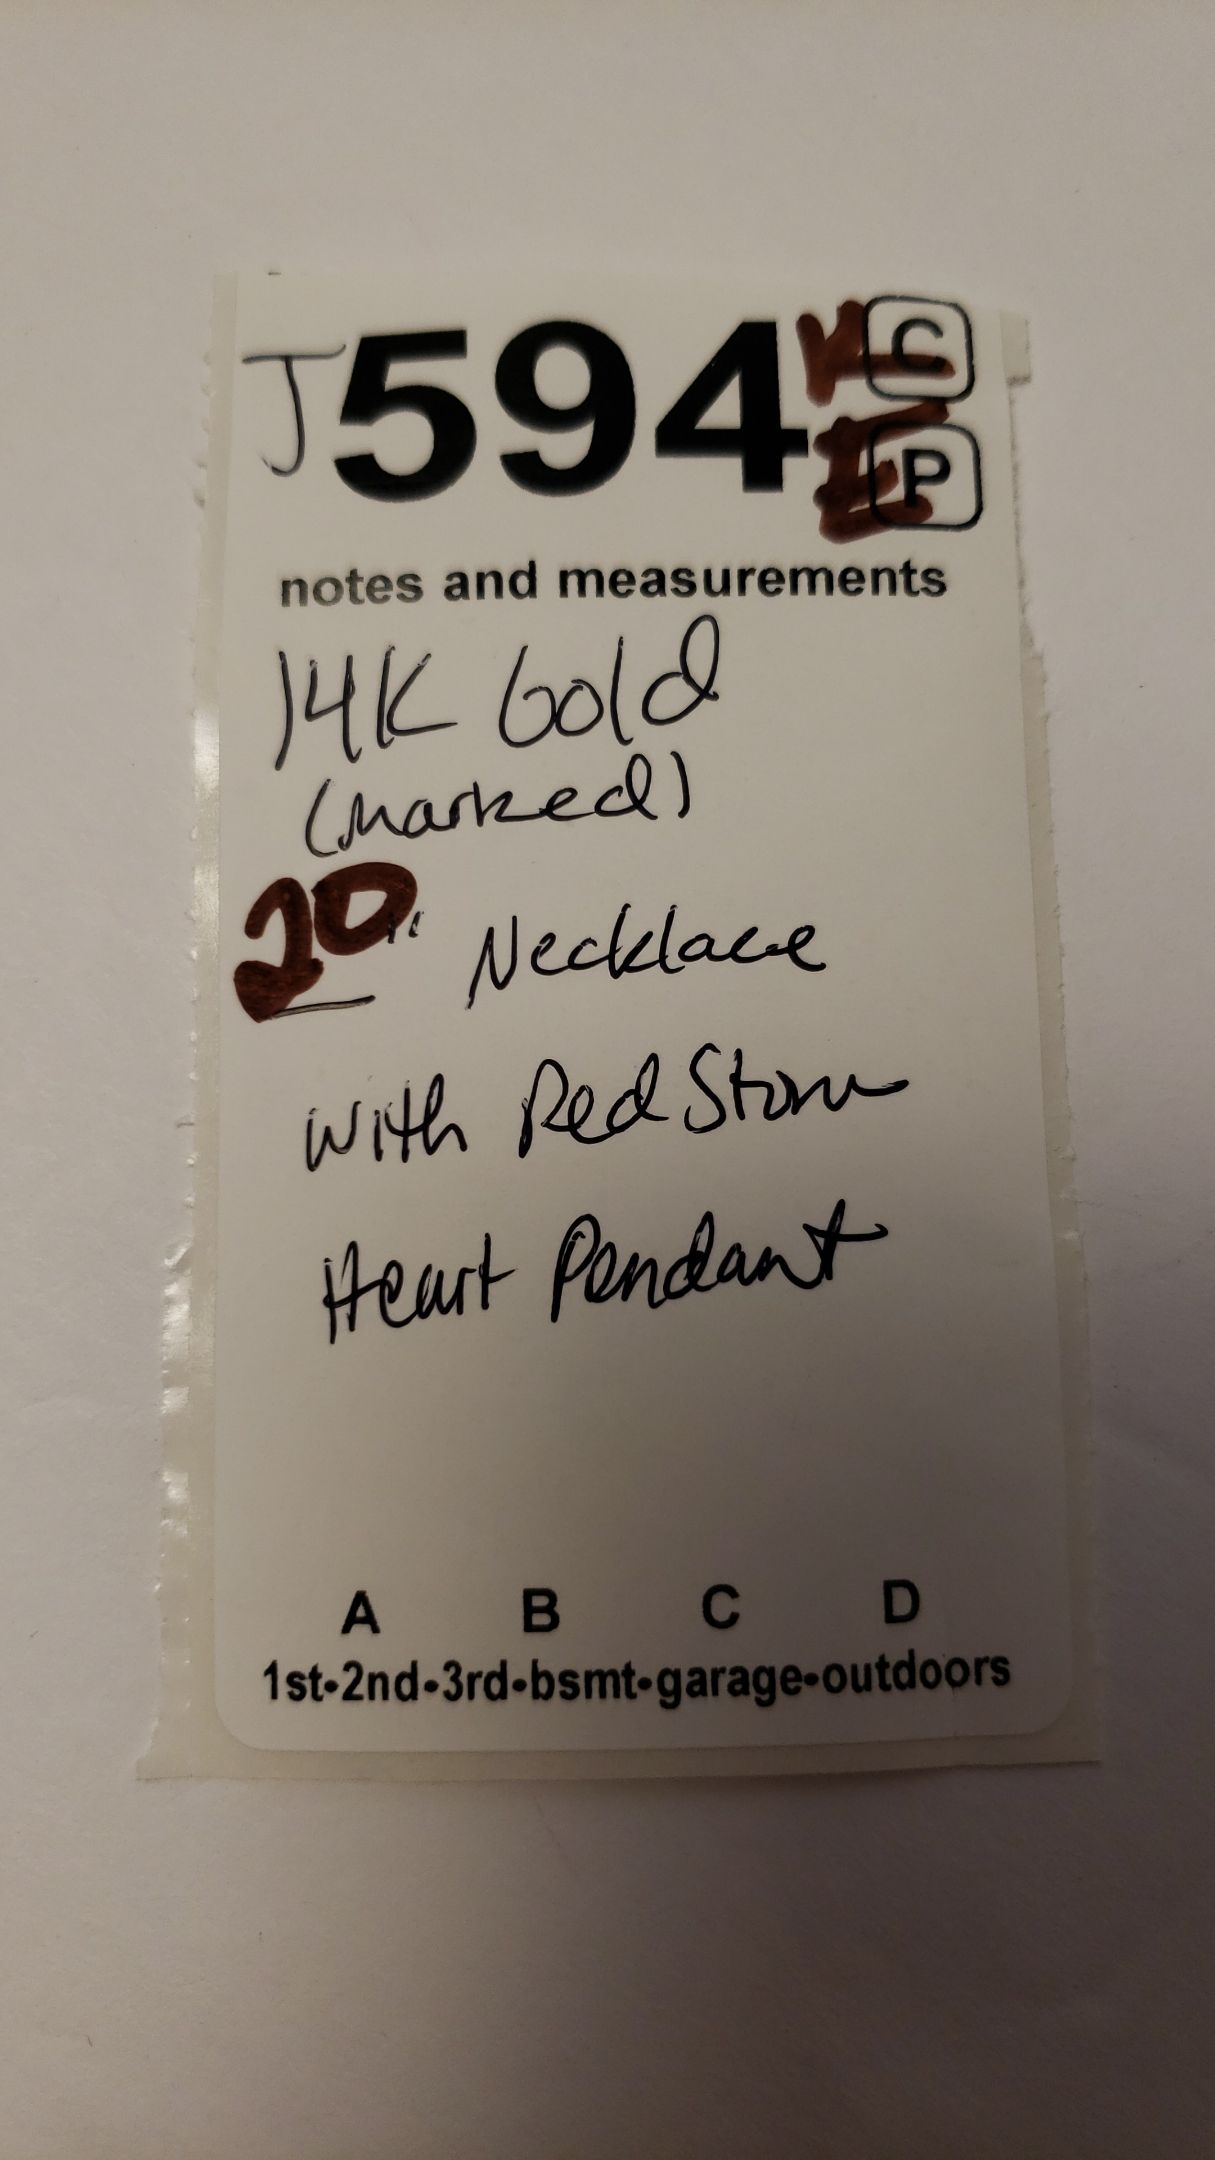 J594 C
P
notes and measurements
14K Gold
(marked)
20" Necklace
with Red Stone
Heart Pendant
A B C D
1st•2nd•3rd•bsmt•garage•outdoors